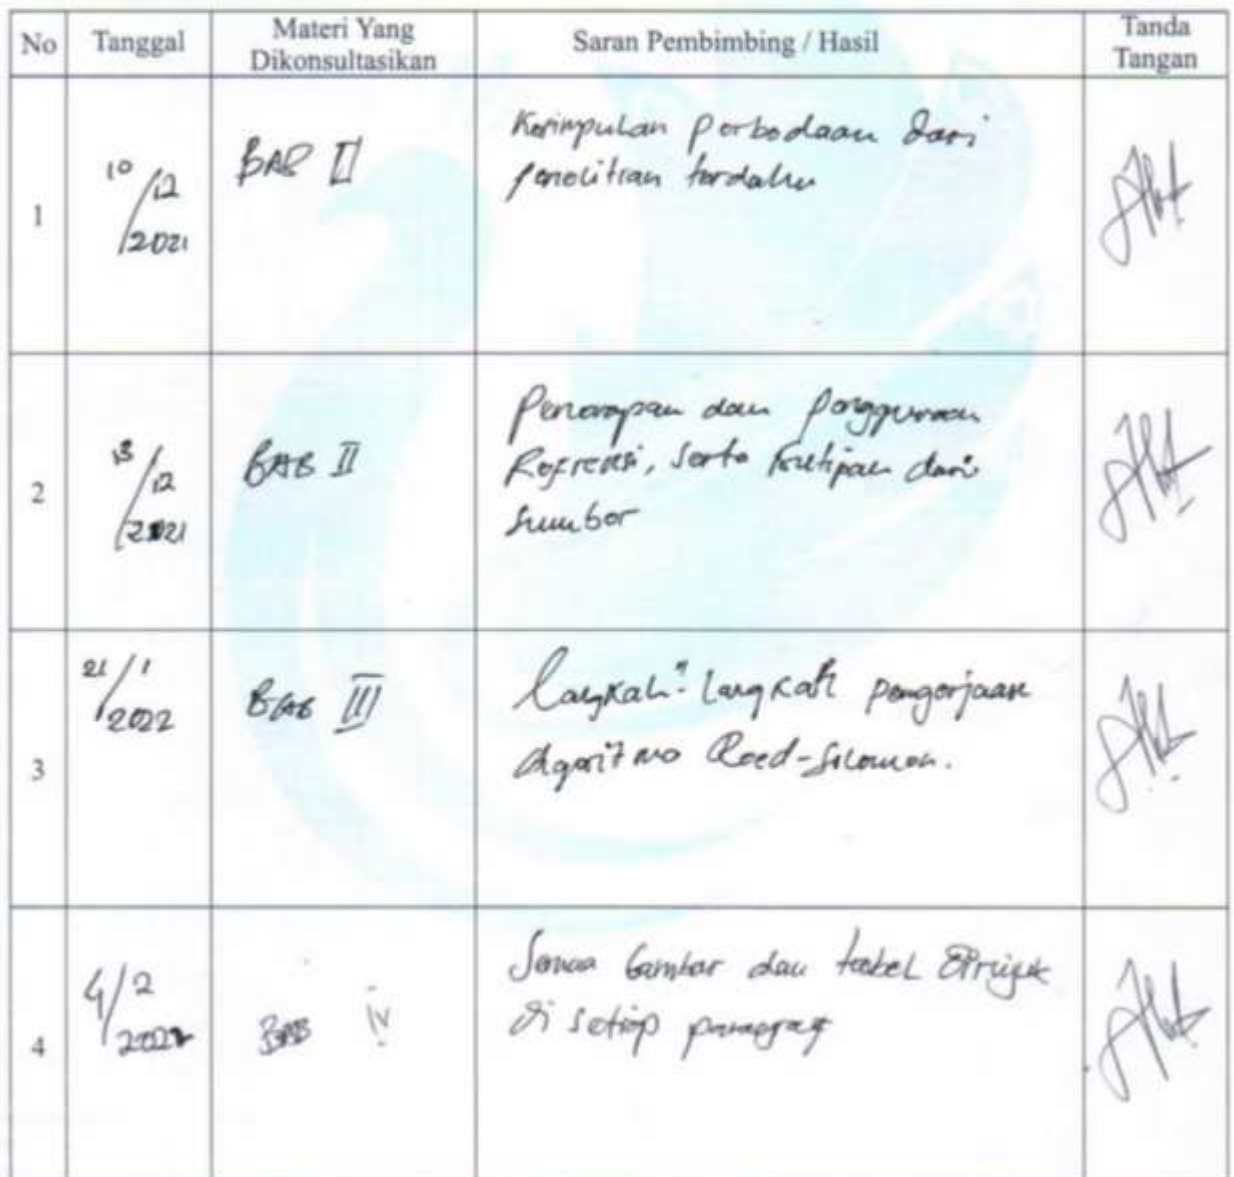 No Tanggal Materi Yang Dikonsultasikan Saran Pembimbing / Hasil Tanda Tangan
1 10/12 2021 BAB II Kesimpulan perbedaan dari
penelitian terdahulu
2 13/12 2021 BAB II Penerapan dan penggunaan
Refrensi, serta kutipan dari
sumber
3 21/1 2022 BAB III langkah" langkah pengerjaan
Algoritma Reed-Solomon.
4 4/2 2022 BAB IV Semua Gambar dan tabel dirujuk
di setiap paragraf